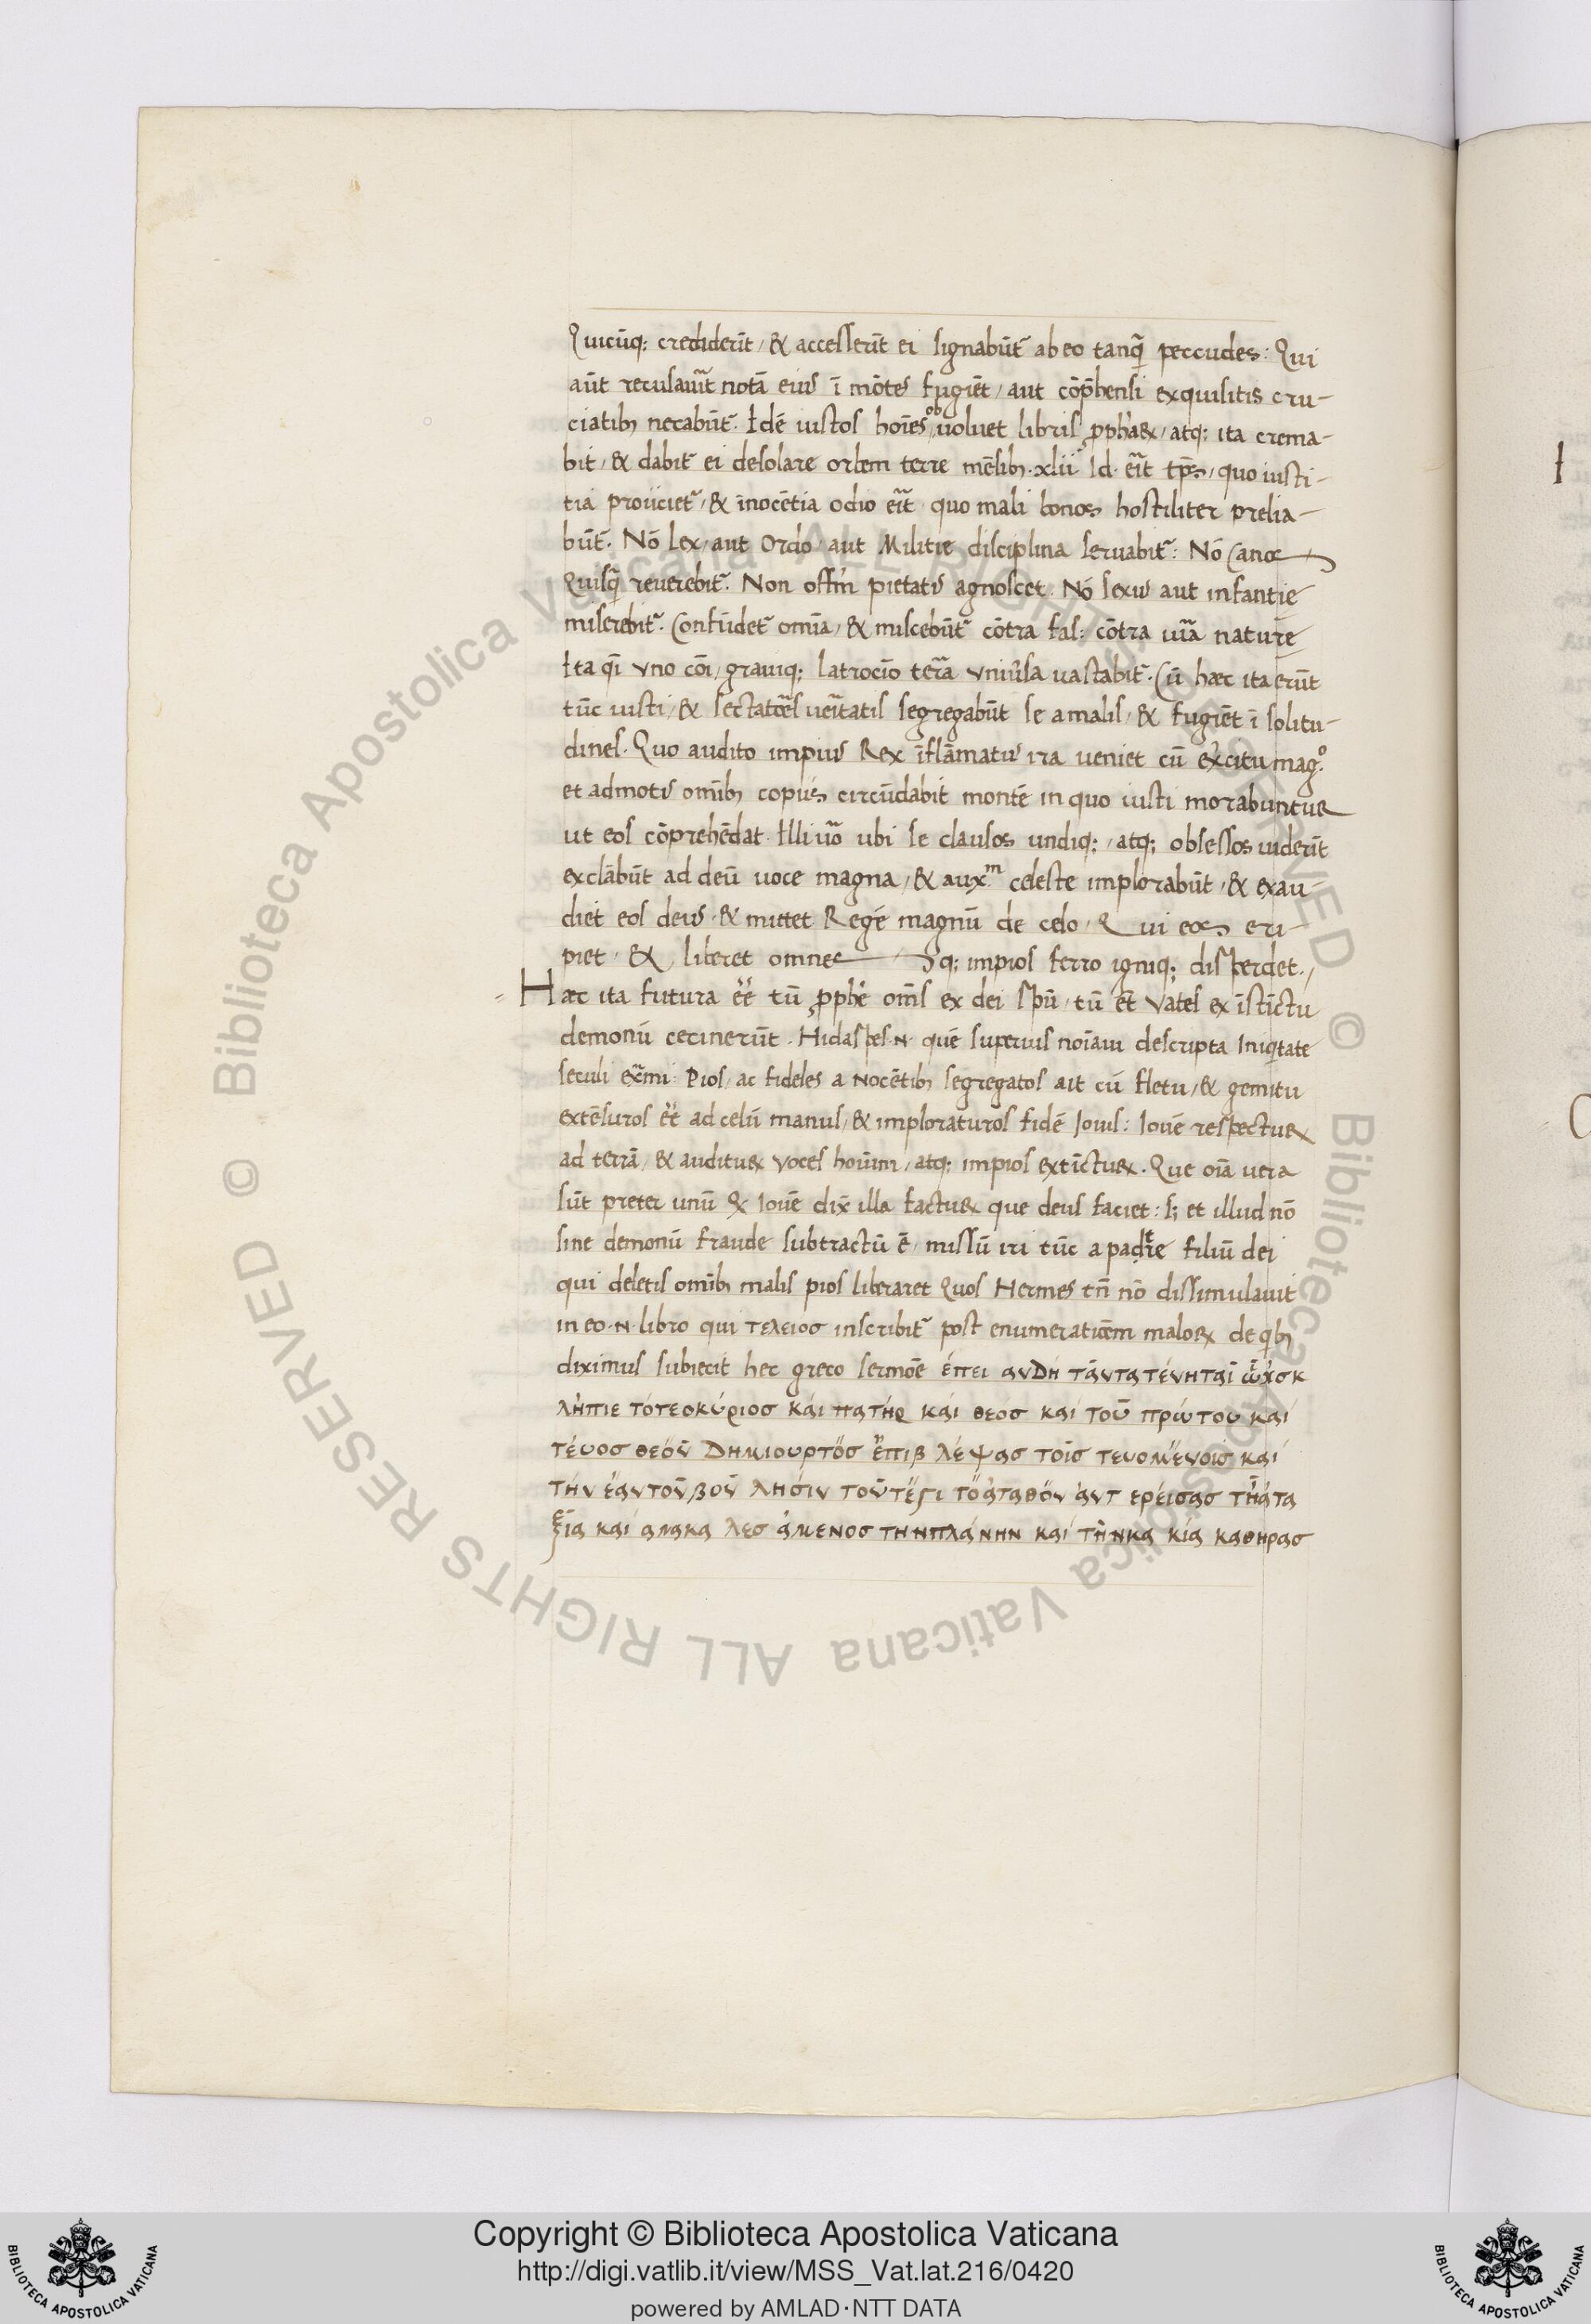 Quicūq; crediderīt / & accesserīt ei signabūt̃ ab eo tanq̃ peccudes: Qui
aūt recusaũit notā eius ī mōtes fugiēt / aut cōp̄hensi exquisitis cru-
ciatib3 necabūt̃. Idē iustos hoīes obuoluet libris ꝓphaꝝ / atq; ita crema-
bit / & dabit̃ ei desolare orbem terre mēsib3 .xlii. Id. erĩt tp̄s / quo iusti-
tia proiiciet̃ / & īnocētia odio erĩt quo mali bonos hostiliter prelia-
būt̃. Nō Lex / aut Ordo / aut Militie disciplina seruabit̃: Nō Canos
Quisq̃ reuerebit̃. Non offm̄ pietatis agnoscet. Nō sexus aut infantie
miserebit̃. Confūdet̃ omīa / & miscebūt̃ cōtra fas: cōtra iũra nature
Ita qī vno cōi / grauiq; latrocīo terã vniũsa uastabit̃. Cū hæc ita erūt
tūc iusti / & sectatoẽs ueĩtatis segregabūt se a malis / & fugiēt ī solitu-
dines. Quo audito impius Rex īflāmatus ira ueniet cū exercitu mag.º
et admotis omīb3 copiis circūdabit montē in quo iusti morabuntur
ut eos cōprehēdat. Illi ũo ubi se clausos undiq; / atq; obsessos uiderīt
exclābūt ad deū uoce magna / & aux.m celeste implorabūt / & exau-
diet eos deus & mittet Regē magnū de celo / Qui eos eri-
piet / & liberet omnes q; impios ferro igniq; disperdet.
Hæc ita futura eē tū ꝓphē om̄s ex dei spū / tū et̄ vates ex īstīctu
demonū cecinerūt. Hidaspes .N. quē superius noīaui descripta Iniq̇tate
seculi exmi: Pios / ac fideles a Nocētib3 segregatos ait cū fletu / & gemitu
extēsuros eē ad celū manus / & imploraturos fidē Iouis: Iouē respectuꝝ
ad terrā / & audituꝝ voces hoīum / atq; impios extīctuꝝ. Que oīa uera
sūt preter unū Qꝝ Iouē dix̄ illa factuꝝ que deus faciet: s; et illud nō
sine demonū fraude subtractū ē / missū iri tūc a padtre filiū dei
qui deletis omīb3 malis pios liberaret Quos Hermes tn̄ nō dissimulauit
in eo .N. libro qui τελειοσ inscribit̃ post enumeratioēm maloꝝ de qb3
diximus subiecit hec greco sermōe έπει ανδή τᾶντα τένηταῖ ὦχσκ
λήπιε τότεοκύριοσ κάι πατήρ και θεοσ και τοῦ πρώτου καί
τέυοσ θεόῦ Δημιουρτόσ ἔπιβ λέψασ τοῖσ τευομένοισ καί
τήν ἑαντοῦβοῦ λησίν τοῦτέςι τὸἀταθόν ἀντ ερέισασ τῆάτα
ξίᾳ καί αλακα λεσ ἀμενοσ τηνπλάνην καί τὴνκα κία καθηρασ
Copyright © Biblioteca Apostolica Vaticana
http://digi.vatlib.it/view/MSS_Vat.lat.216/0420
powered by AMLAD·NTT DATA